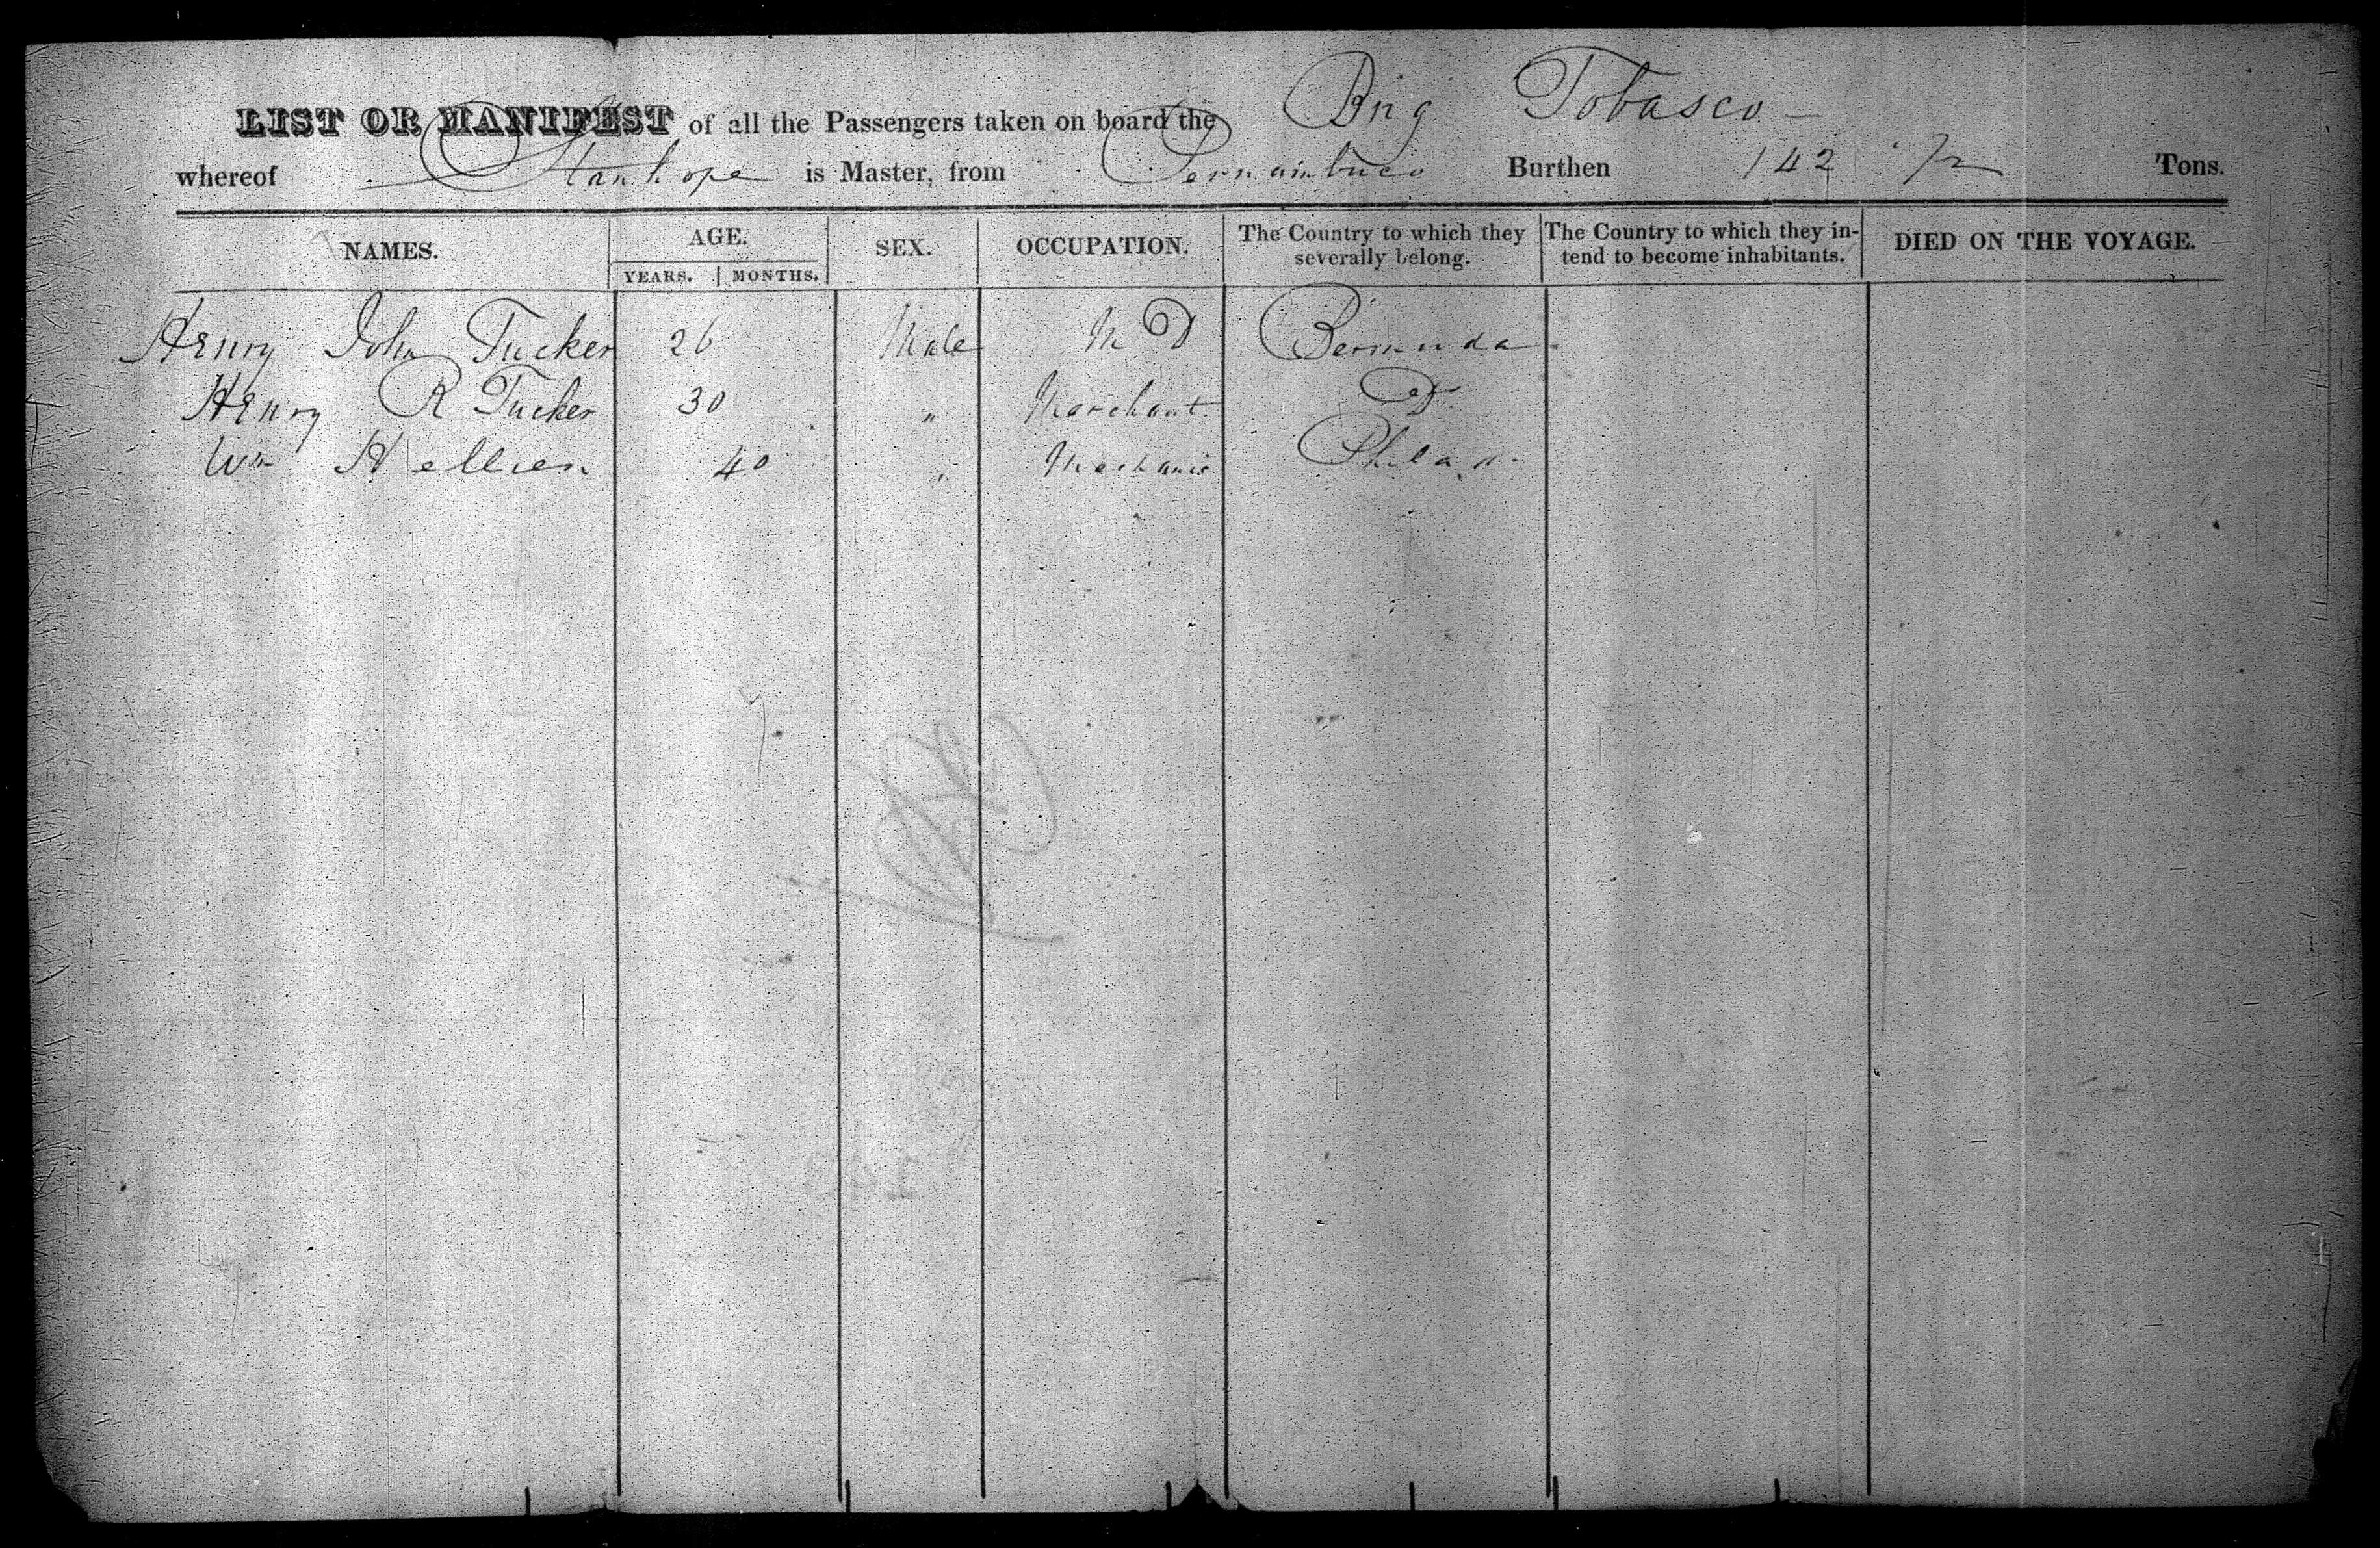 LIST OR MANIFEST of all the Passengers taken on board the Brig Tobasco
whereof Stanhope is Master, from Pernambuco Burthen 142 Tons.
NAMES. AGE. SEX. OCCUPATION. The Country to which they severally belong. The Country to which they intend to become inhabitants. DIED ON THE VOYAGE.
YEARS. MONTHS.
Henry John Tucker 26 Male MD Bermuda
Henry R Tucker 30 " Merchant Do
Wm Hellien 40 " Mechanic Philad.